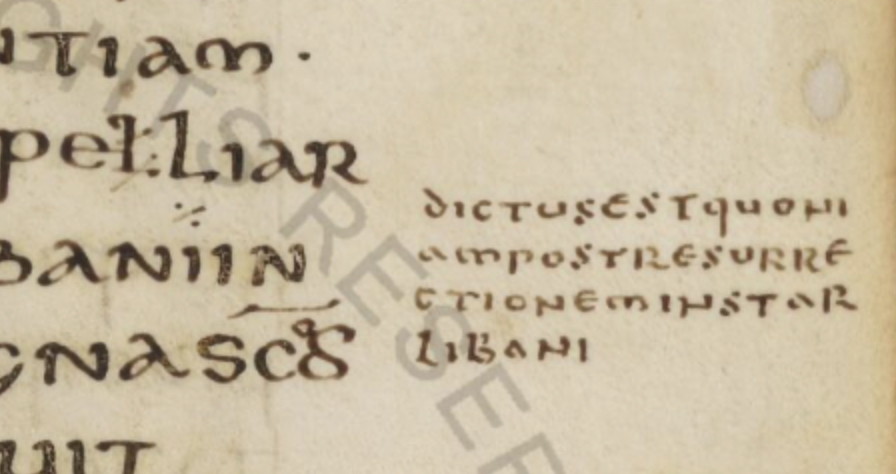 NTIAM ·
pellIAR
BANIIN
GNASC
UIT
DICTUSESTQUONI
AMPOSTRESURRE
CTIONEMINSTAR
LIBANI
GHTS RESER